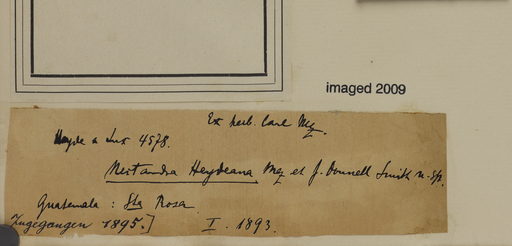 imaged 2009
Ex herb. Carl Mez.
Heyde & Lux 4578.
Nectandra Heydeana Mez et J. Donnell Smith n. sp.
Guatemala : Sta Rosa
Zugegangen 1895.] I. 1893.